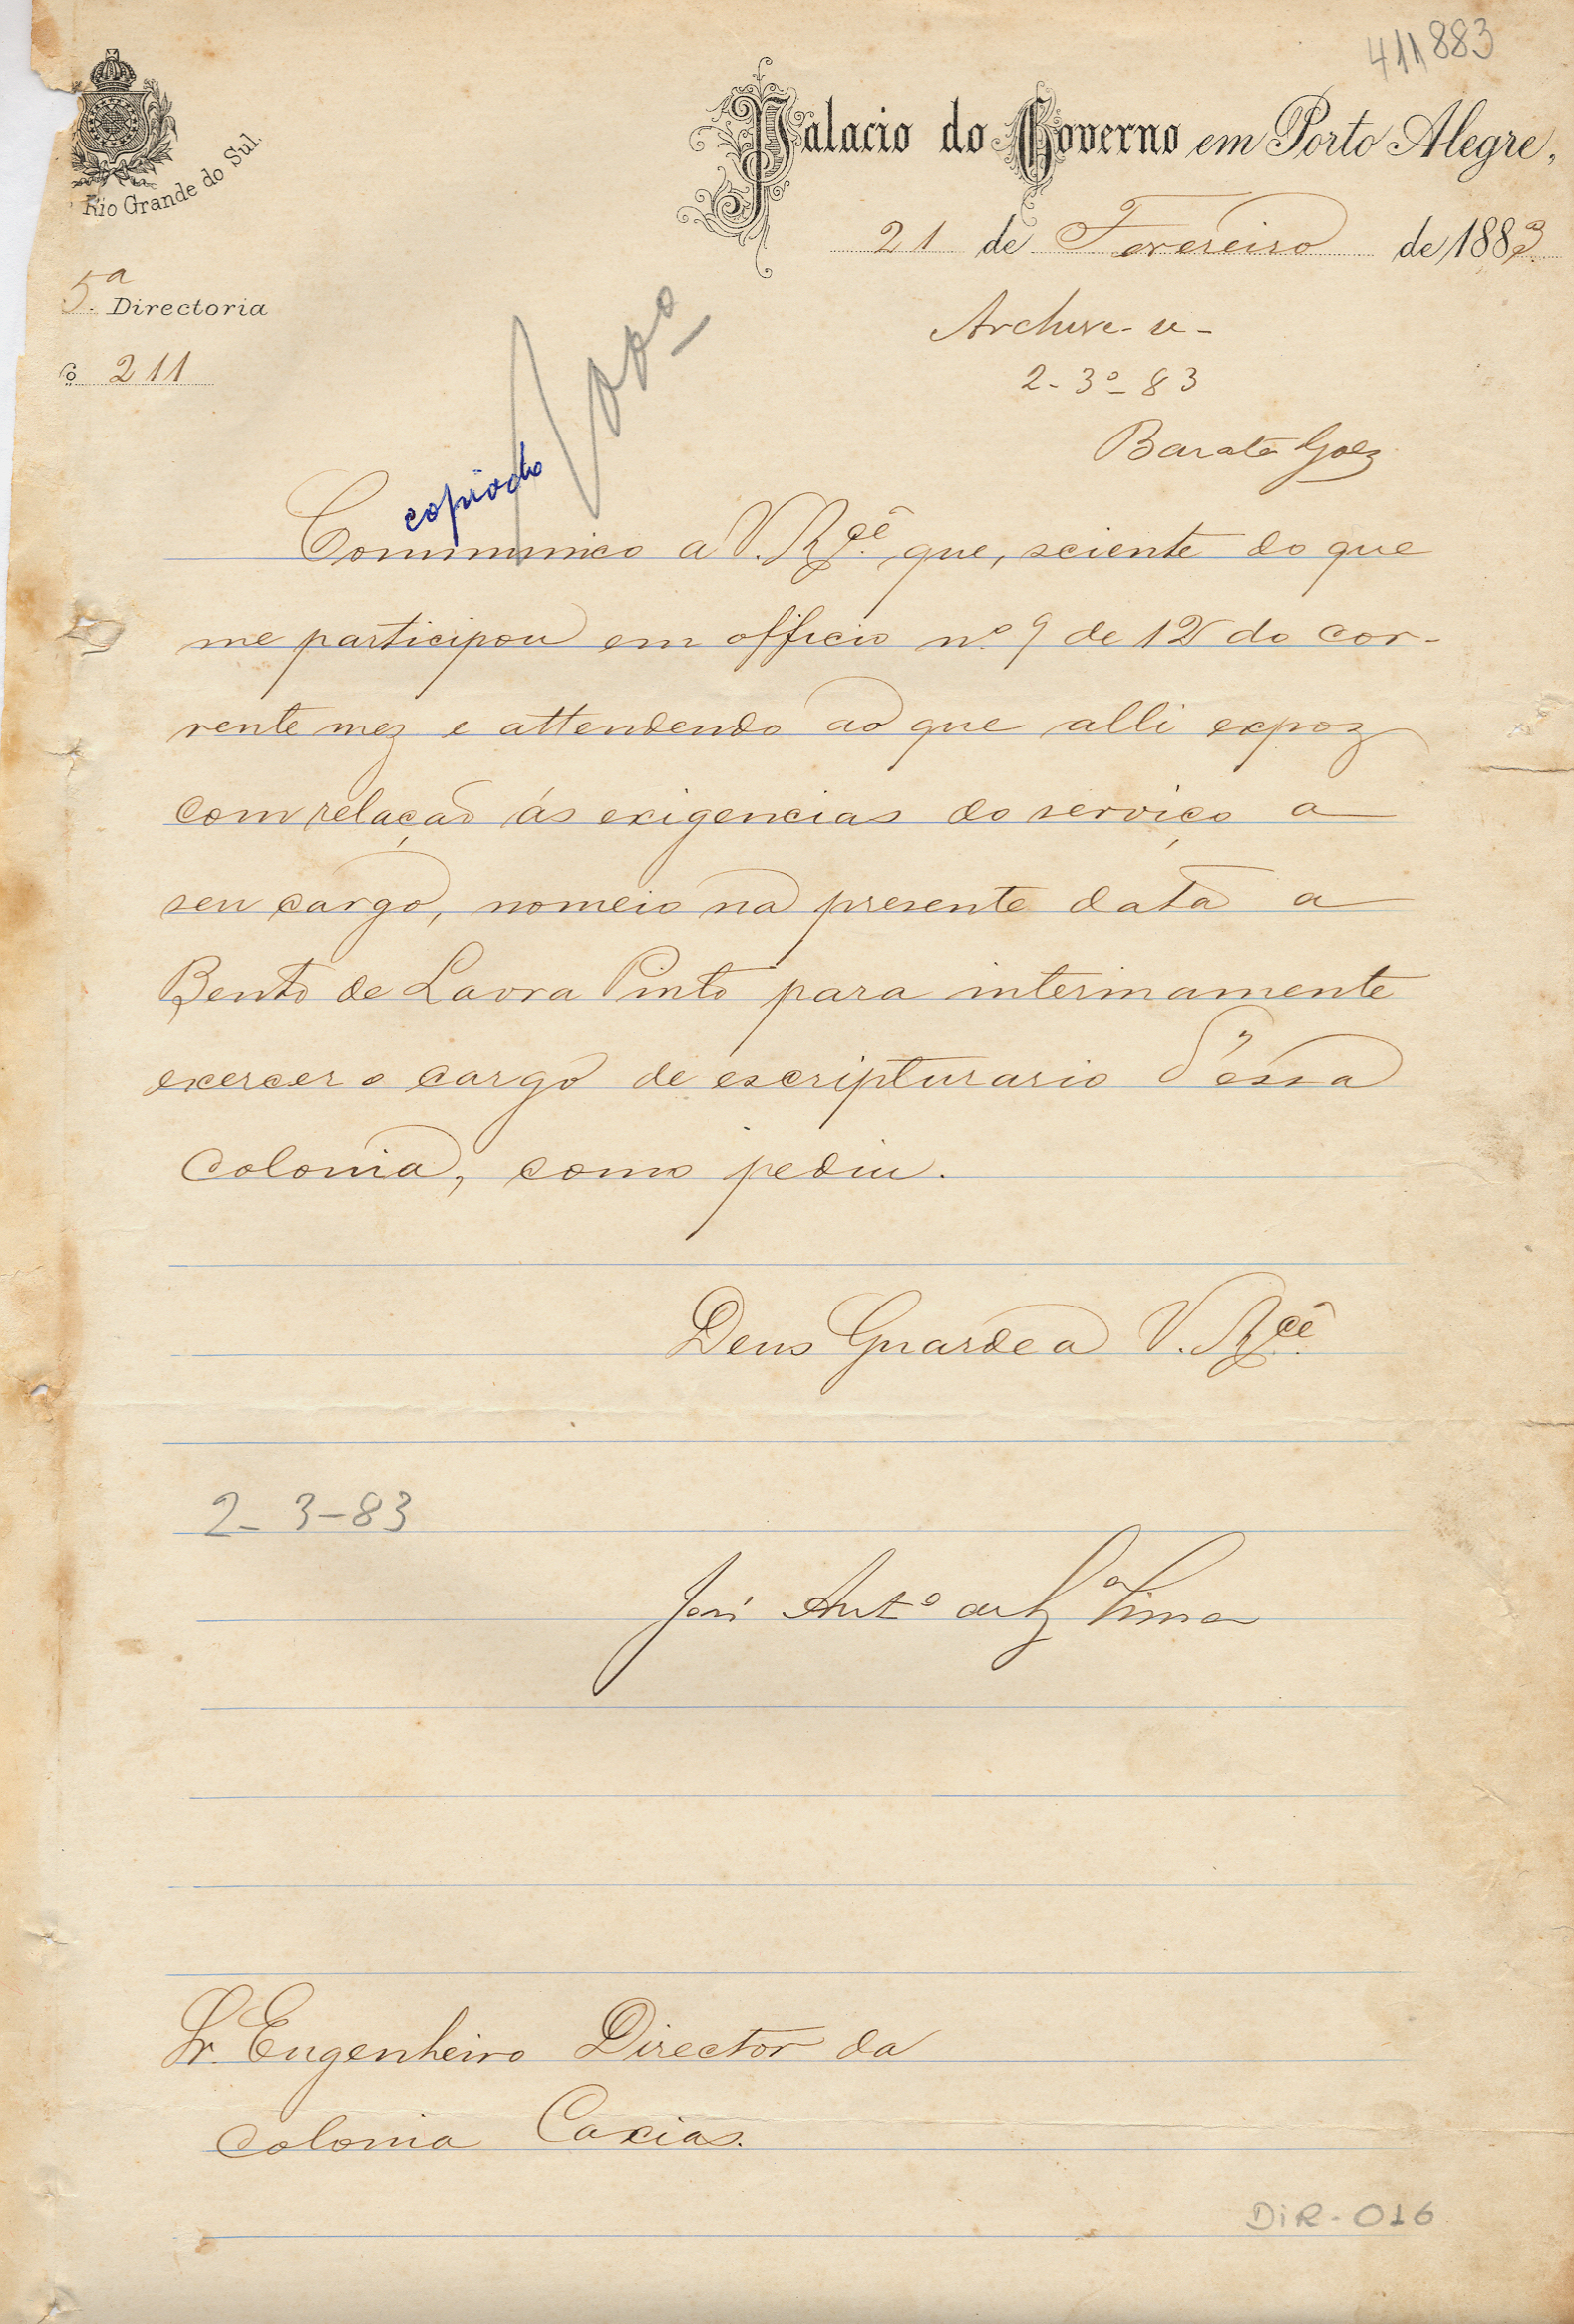 411883
Palacio do Governo em Porto Alegre,
Rio Grande do Sul.
21 de Fevereiro de 1883
5.ª Directoria
211
Archive-se-
2-3º-83
Barata Goes
copiado
Communico a V. Mcê. que, sciente do que
me participou em officio nº 9 de 12 do cor-
rente mez e attendendo ao que alli expoz
com relação ás exigencias do serviço a
seu cargo, nomeio na presente data a
Bento de Lavra Pinto para interinamente
exercer o cargo de escripturario d'essa
colonia, como pediu.
Deus Guarde a V. Mcê.
2-3-83
José Antº de Sª Lima
Sr. Engenheiro Director da
colonia Caxias.
DIR-016